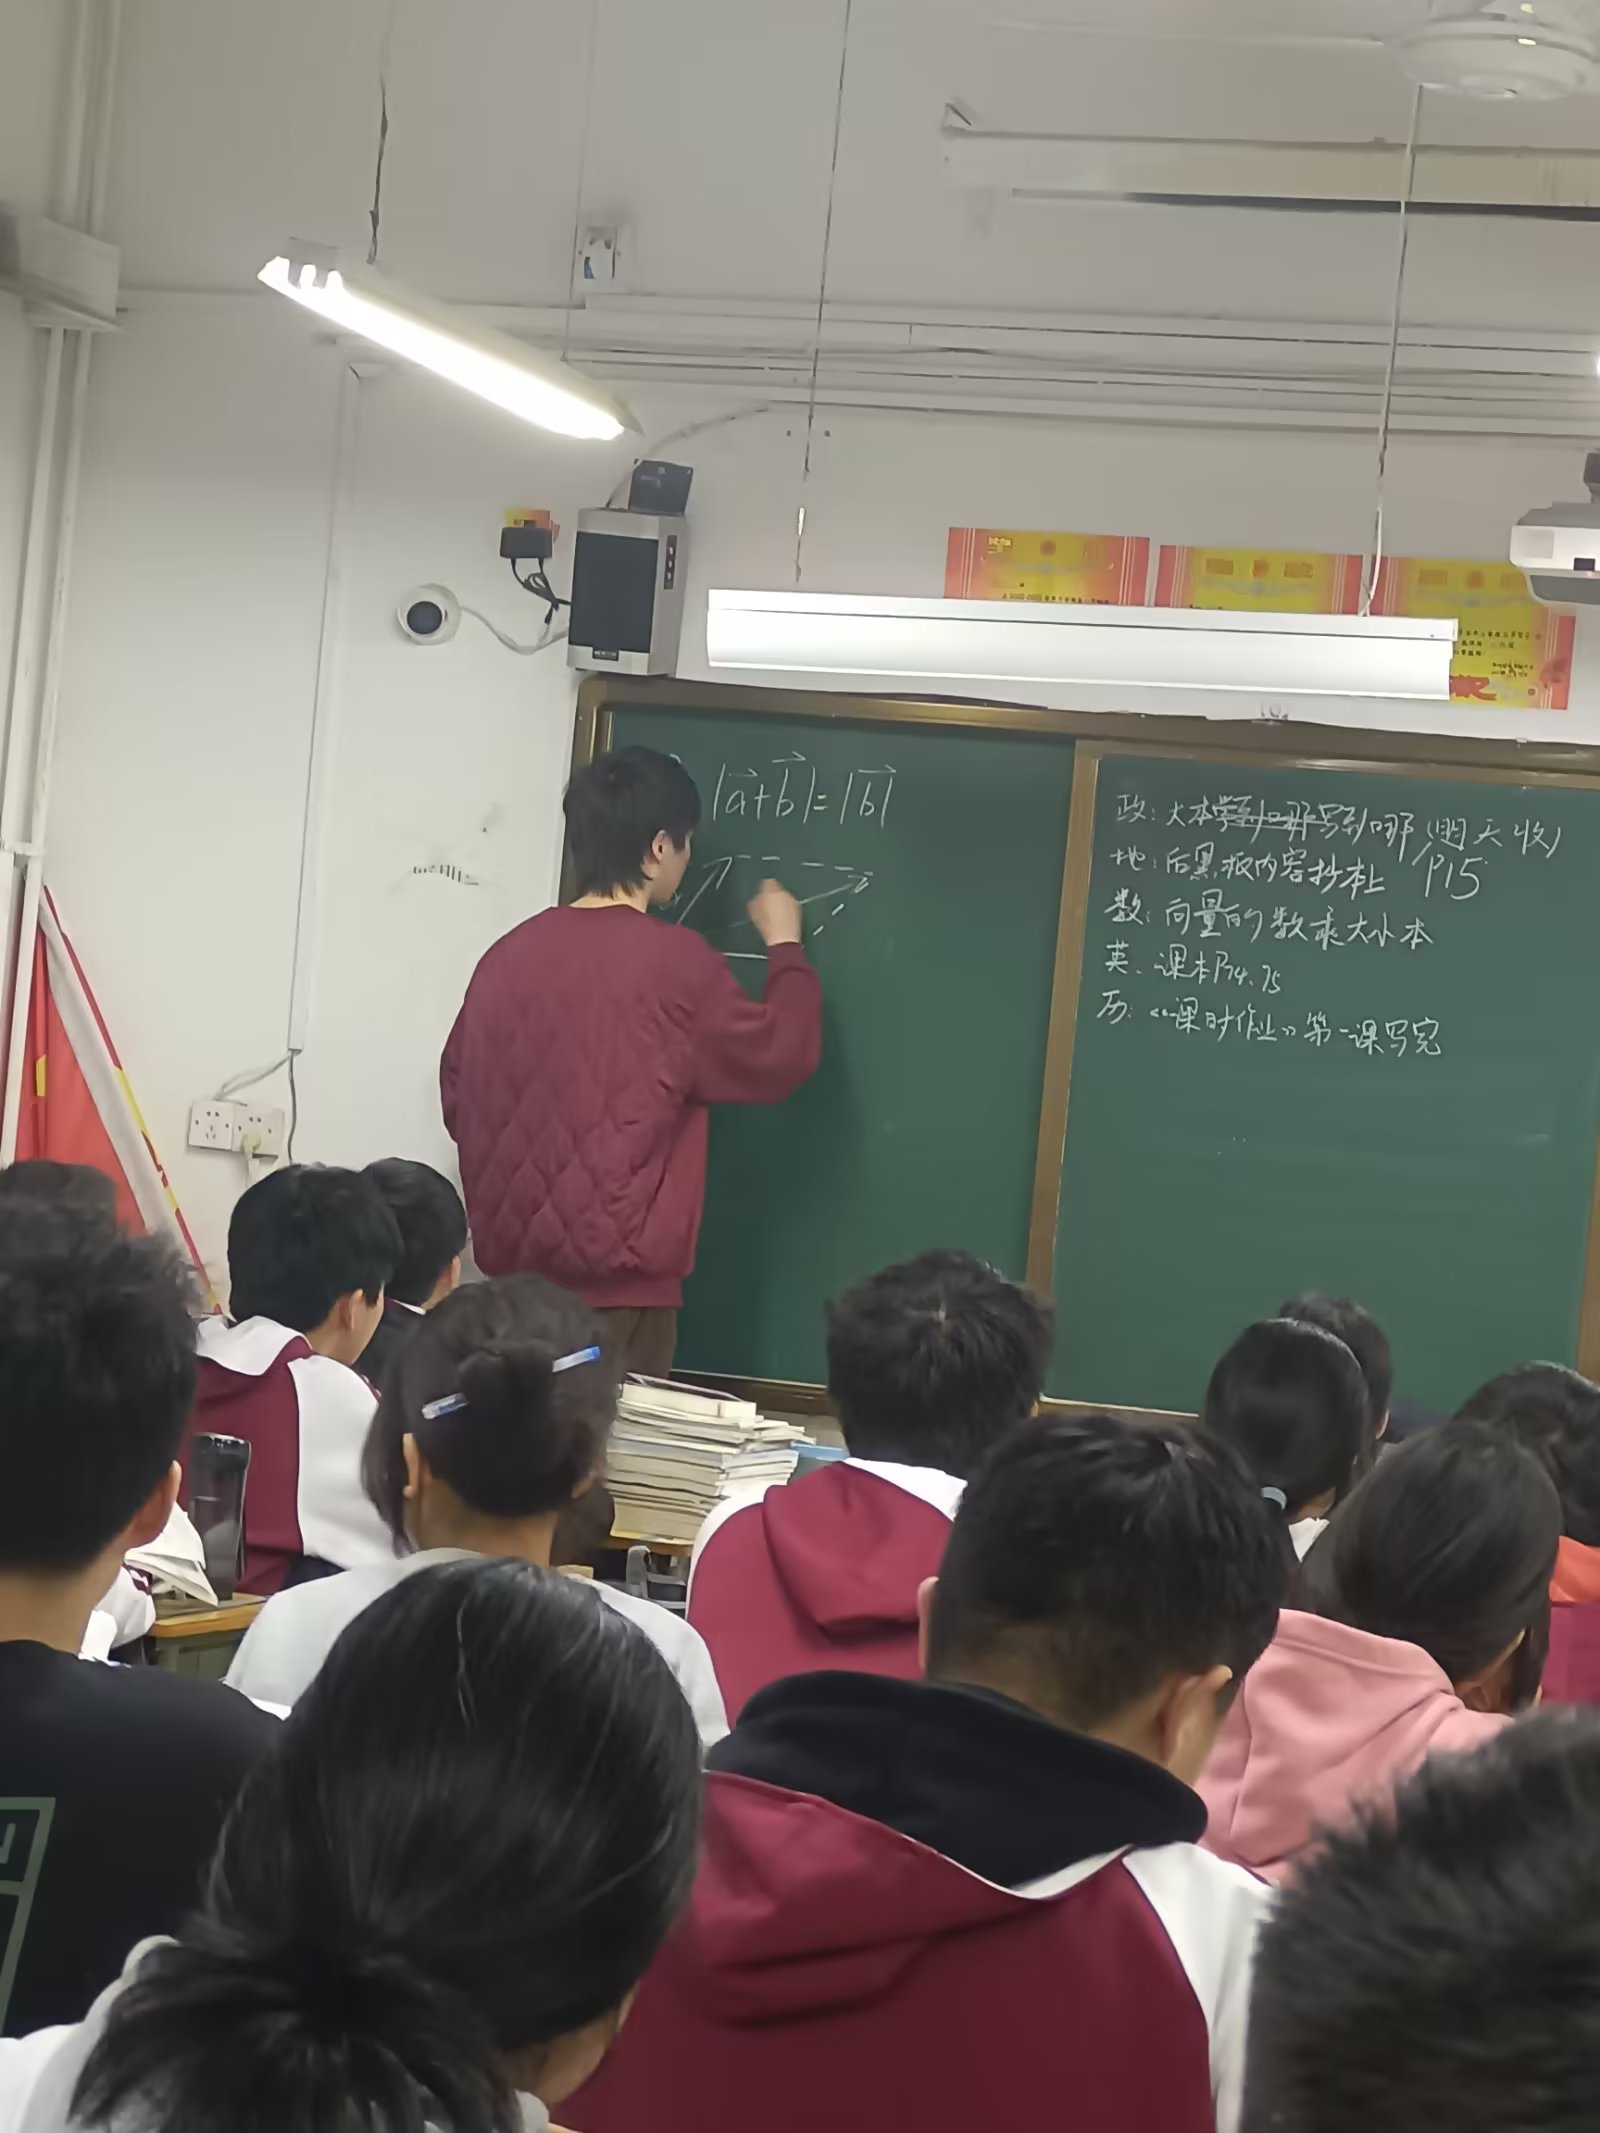 |a⃗+b⃗|=|b⃗|
政：大本学到哪写到哪（明天收）
地：后黑板内容抄本上 P15
数：向量的数乘大小本
英、课本P74、75
历：《课时作业》第一课写完